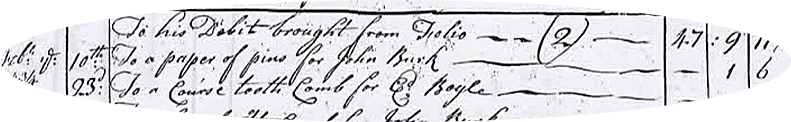 To his Debit brought from Folio (2) 47 : 9 11
10th To a paper of pins for John Burk 1 6
23d To a Course tooth Comb for Ed Boyle
John